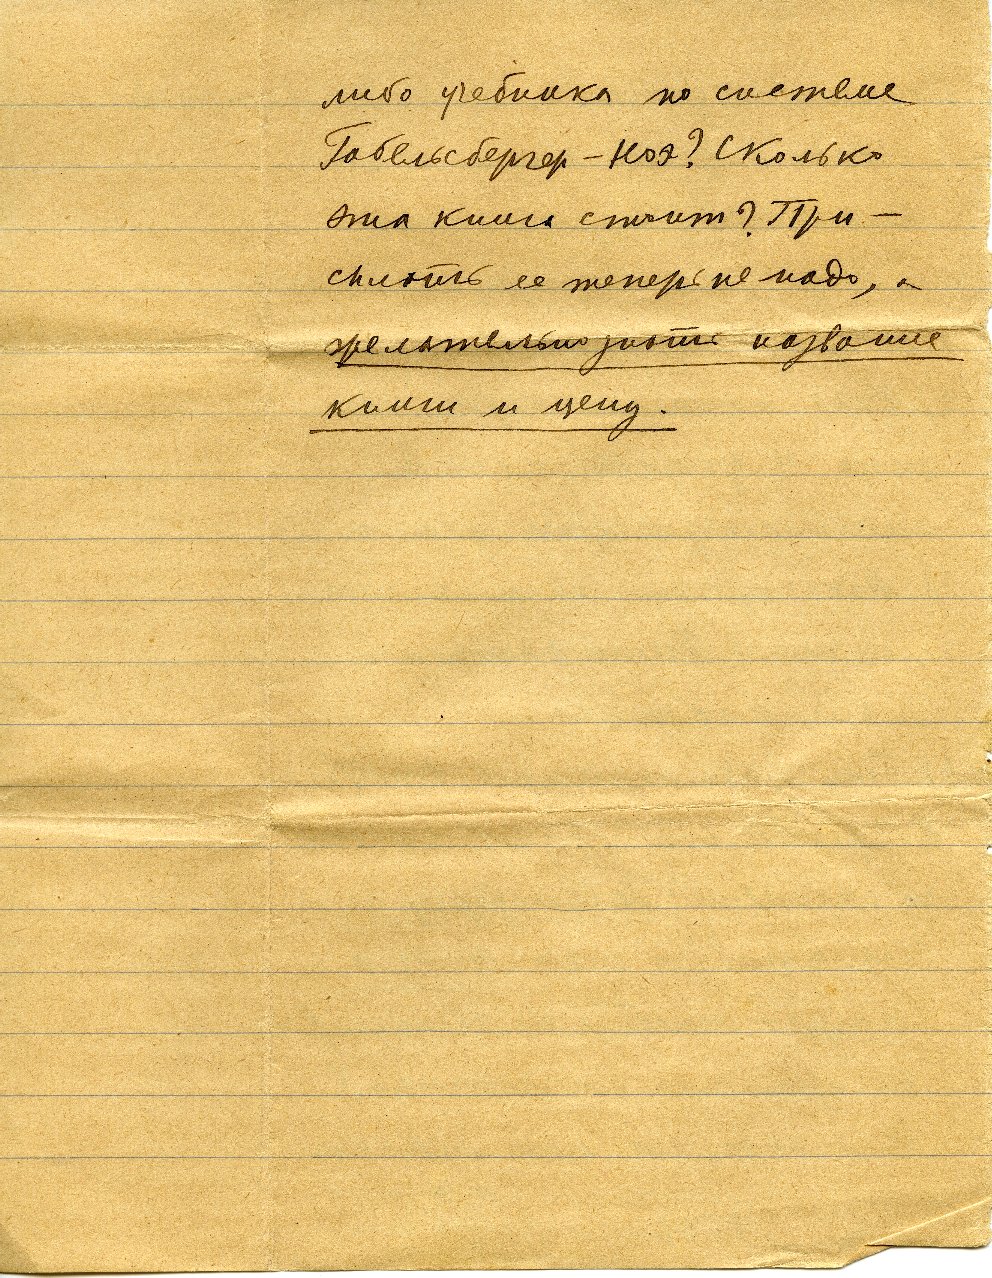 либо учебника по системе
Габельсбергер – Ноэ? Сколько
эта книга стоит? При –
сылать ее теперь не надо, а
желательно знать название
книги и цену.